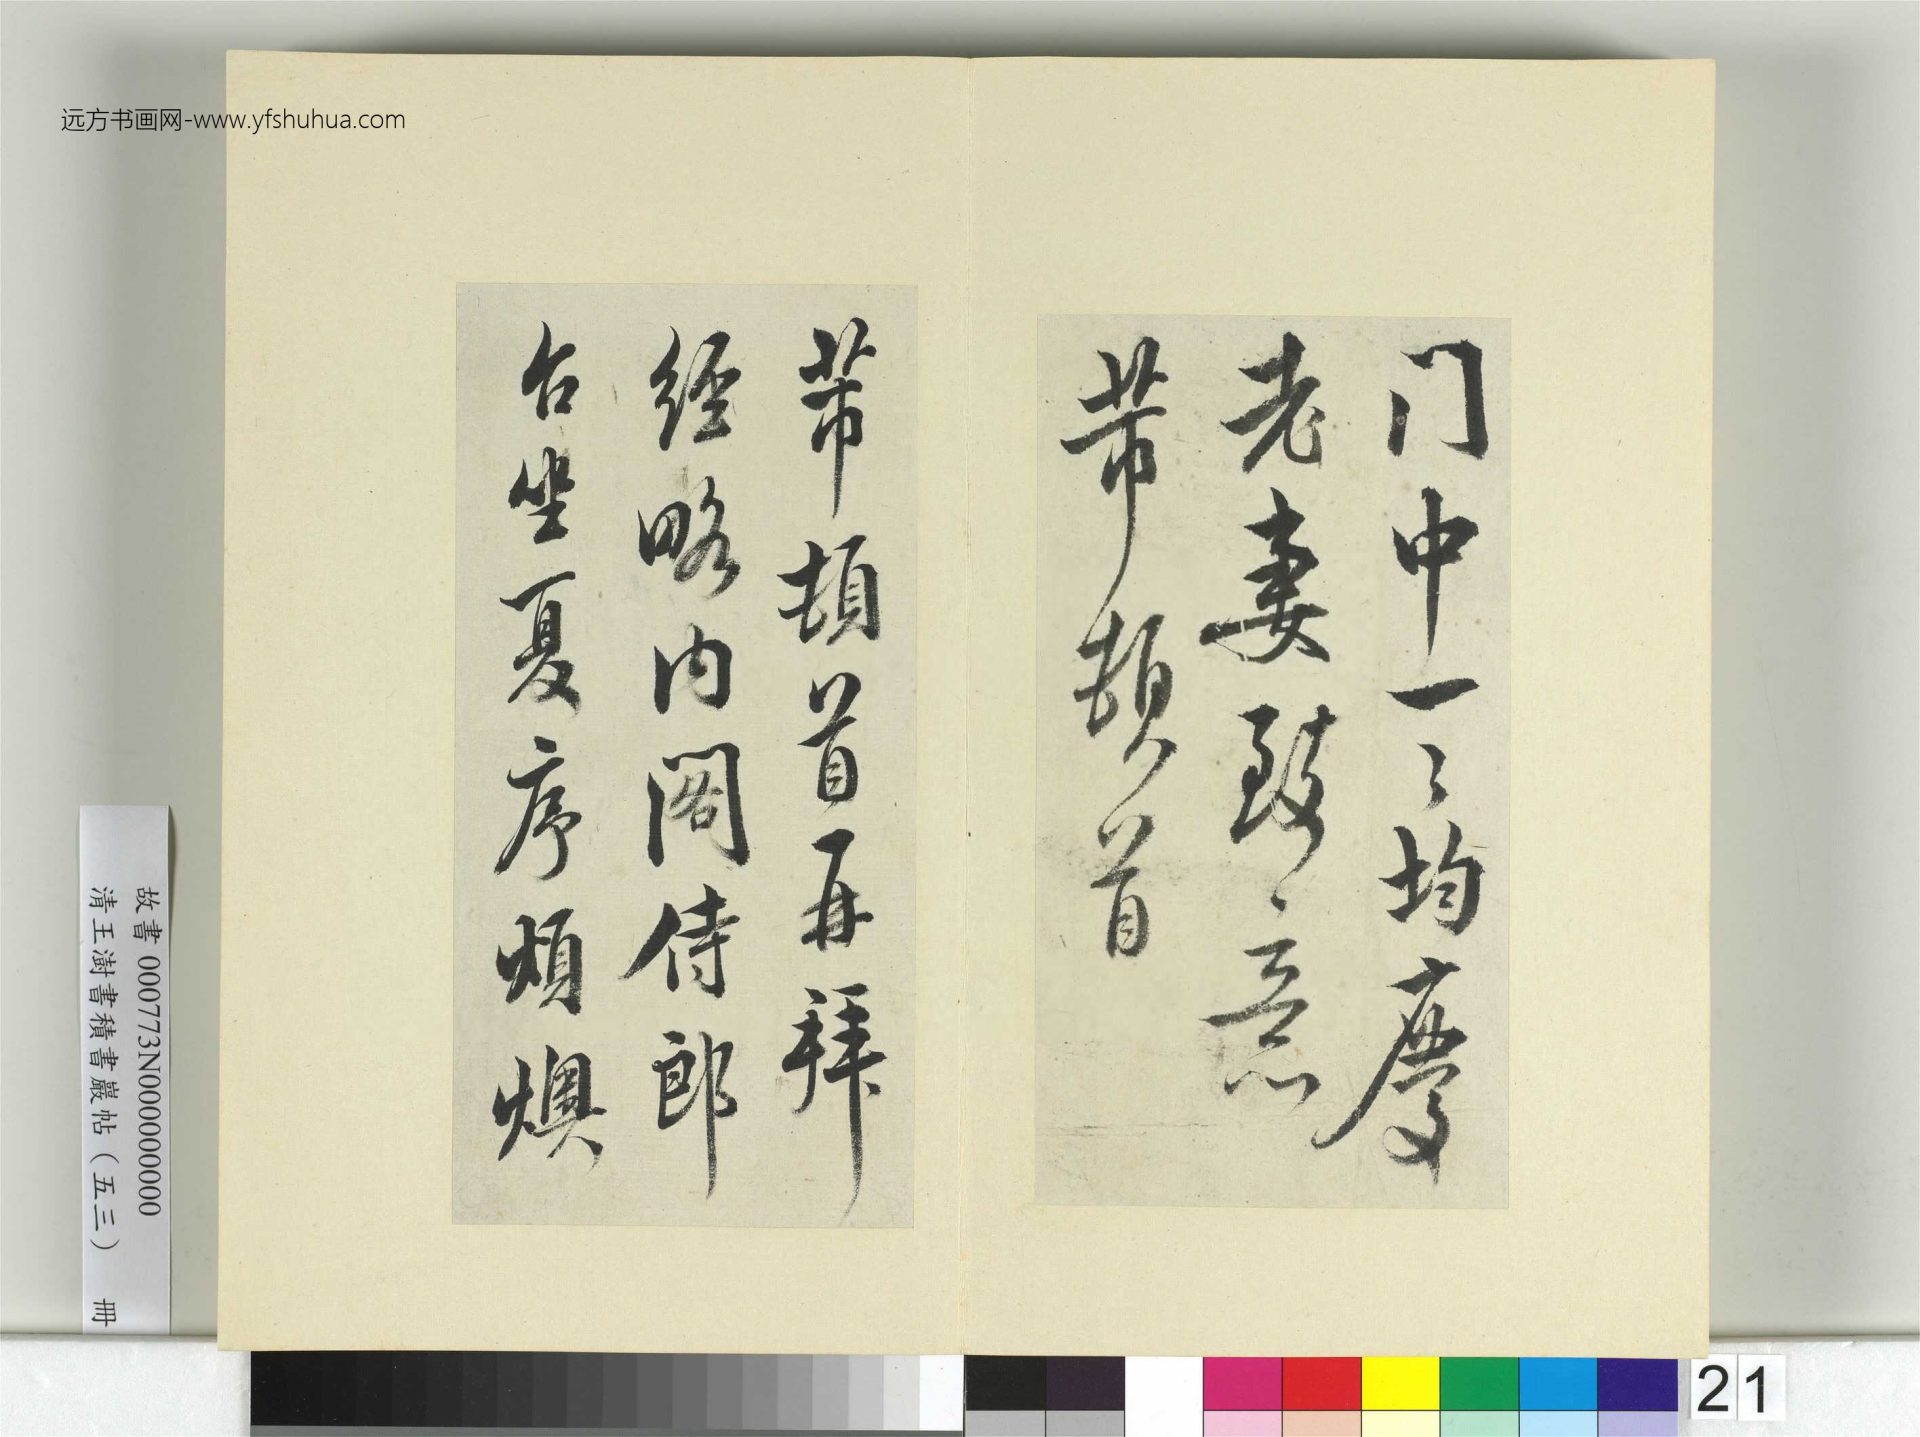 远方书画网-www.yfshuhua.com
门中一々均慶
老妻致意
芾頓首
芾頓首再拜
經略内閣侍郎
台坐夏序煩燠
故書 000773N000000000
清王澍書積書巖帖（五三） 冊
21